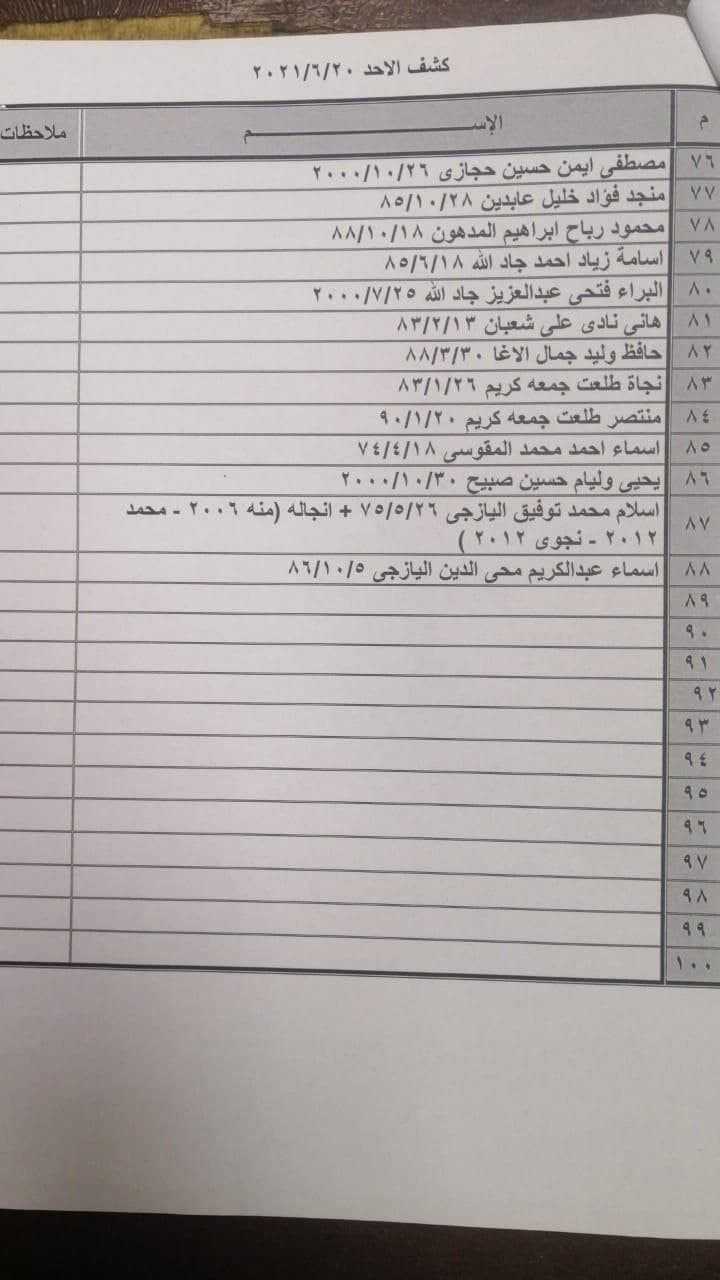 كشف الاحد ٢٠٢١/٦/٢٠
م الإســـــــــــــــــــــــــــــم ملاحظات
٧٦ مصطفى ايمن حسين حجازى ٢٠٠٠/١٠/٢٦
٧٧ منجد فؤاد خليل عابدين ٨٥/١٠/٢٨
٧٨ محمود رباح ابراهيم المدهون ٨٨/١٠/١٨
٧٩ اسامة زياد احمد جاد الله ٨٥/٦/١٨
٨٠ البراء فتحى عبدالعزيز جاد الله ٢٠٠٠/٧/٢٥
٨١ هانى نادى على شعبان ٨٣/٢/١٣
٨٢ حافظ وليد جمال الاغا ٨٨/٣/٣٠
٨٣ نجاة طلعت جمعه كريم ٨٣/١/٢٦
٨٤ منتصر طلعت جمعه كريم ٩٠/١/٢٠
٨٥ اسماء احمد محمد المقوسى ٧٤/٤/١٨
٨٦ يحيى وليام حسين صبيح ٢٠٠٠/١٠/٣٠
٨٧ اسلام محمد توفيق اليازجى ٧٥/٥/٢٦ + انجاله (منه ٢٠٠٦ - محمد
٢٠١٢ - نجوى ٢٠١٢ )
٨٨ اسماء عبدالكريم محى الدين اليازجى ٨٦/١٠/٥
٨٩
٩٠
٩١
٩٢
٩٣
٩٤
٩٥
٩٦
٩٧
٩٨
٩٩
١٠٠